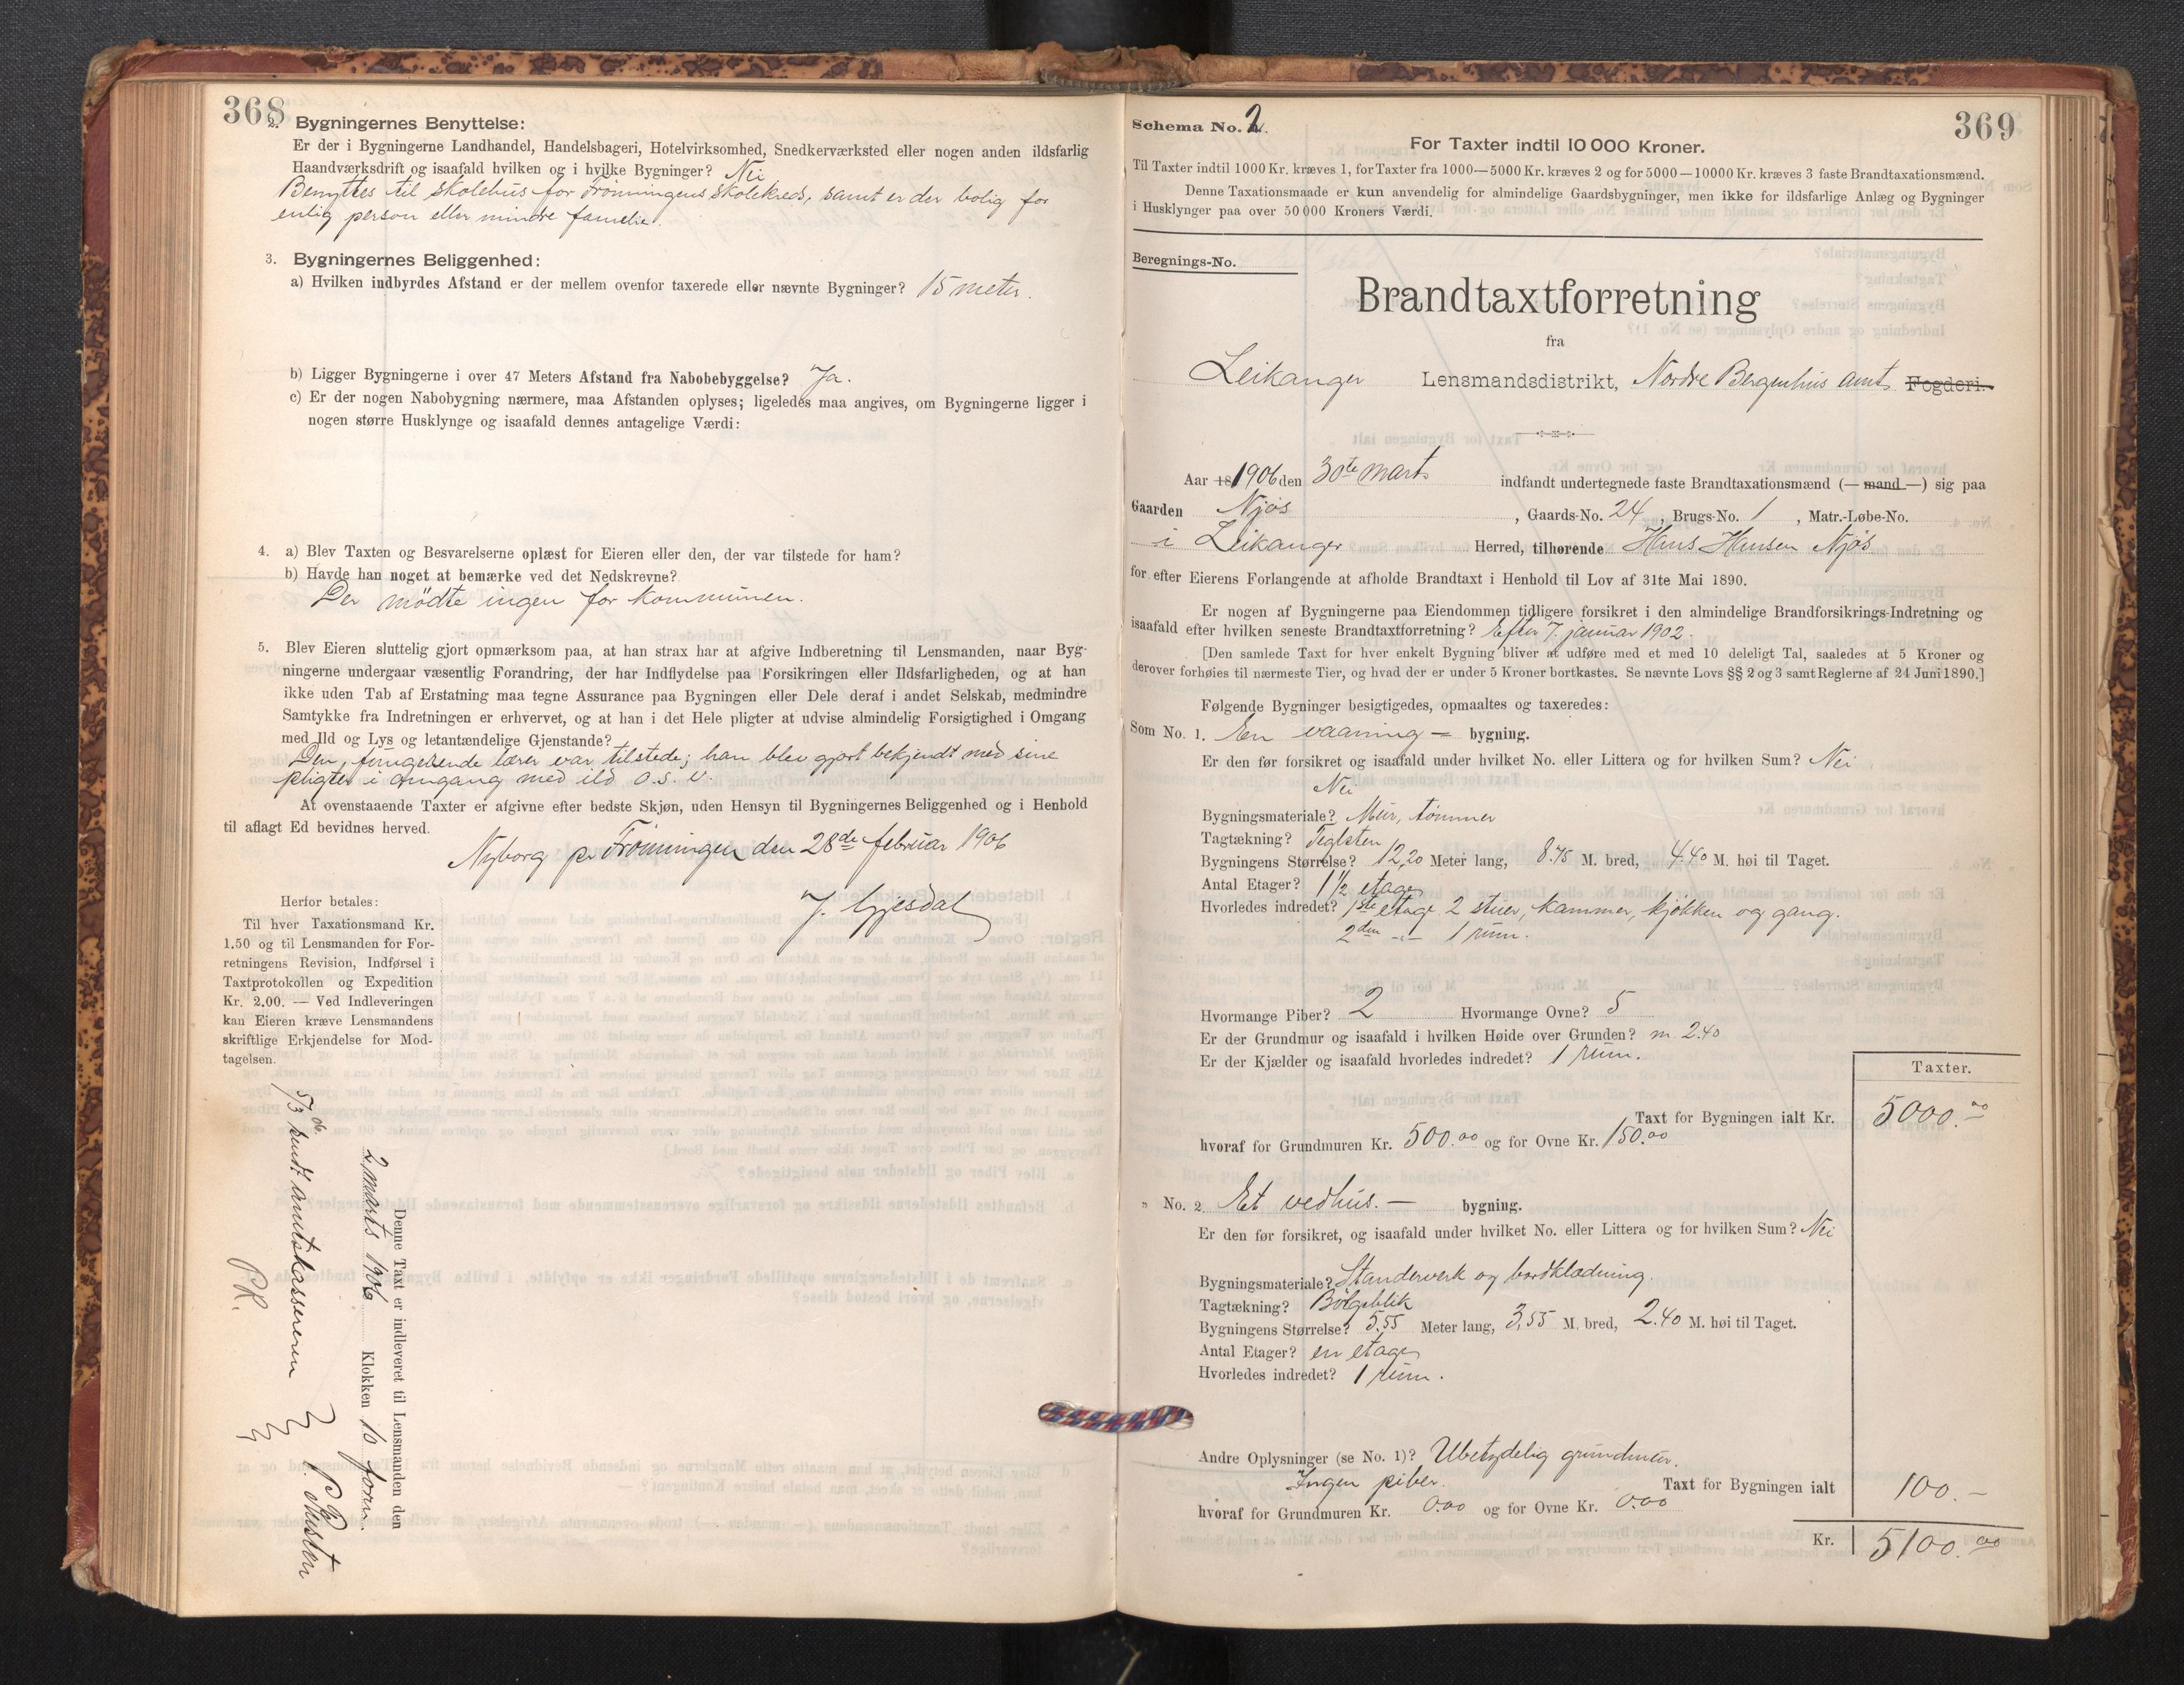 368
2. Bygningernes Benyttelse:
Er der i Bygningerne Landhandel, Handelsbageri, Hotelvirksomhed, Snedkerværksted eller nogen anden ildsfarlig
Haandværksdrift og isaafald hvilken og i hvilke Bygninger? Nei
Benyttes til skolehus for Frønningens skolekreds, samt er der bolig for
enlig person eller mindre familie.
3. Bygningernes Beliggenhed:
a) Hvilken indbyrdes Afstand er der mellem ovenfor taxerede eller nævnte Bygninger? 15 meter.
b) Ligger Bygningerne i over 47 Meters Afstand fra Nabobebyggelse? Ja.
c) Er der nogen Nabobygning nærmere, maa Afstanden oplyses; ligeledes maa angives, om Bygningerne ligger i
nogen større Husklynge og isaafald dennes antagelige Værdi:
4. a) Blev Taxten og Besvarelserne oplæst for Eieren eller den, der var tilstede for ham?
b) Havde han noget at bemærke ved det Nedskrevne?
Der mödte ingen for kommunen.
5. Blev Eieren sluttelig gjort opmærksom paa, at han strax har at afgive Indberetning til Lensmanden, naar Byg-
ningerne undergaar væsentlig Forandring, der har Indflydelse paa Forsikringen eller Ildsfarligheden, og at han
ikke uden Tab af Erstatning maa tegne Assurance paa Bygningen eller Dele deraf i andet Selskab, medmindre
Samtykke fra Indretningen er erhvervet, og at han i det Hele pligter at udvise almindelig Forsigtighed i Omgang
med Ild og Lys og letantændelige Gjenstande?
Den fungerende lærer var tilstede; han blev gjort bekjendt med sine
pligter i omgang med ild o. s. v.
At ovenstaaende Taxter er afgivne efter bedste Skjøn, uden Hensyn til Bygningernes Beliggenhed og i Henhold
til aflagt Ed bevidnes herved.
Nyborg pr Frönningen den 28de februar 1906
J. Gjesdal
Herfor betales:
Til hver Taxationsmand Kr.
1.50 og til Lensmanden for For-
retningens Revision, Indførsel i
Taxtprotokollen og Expedition
Kr. 2.00. — Ved Indleveringen
kan Eieren kræve Lensmandens
skriftlige Erkjendelse for Mod-
tagelsen.
Denne Taxt er indleveret til Lensmanden den
2 marts 1906 Klokken 10 form.
5/3 06. sendt amtskassereren
PR.
369
Schema No. 2.
For Taxter indtil 10 000 Kroner.
Til Taxter indtil 1000 Kr. kræves 1, for Taxter fra 1000—5000 Kr. kræves 2 og for 5000—10000 Kr. kræves 3 faste Brandtaxationsmænd.
Denne Taxationsmaade er kun anvendelig for almindelige Gaardsbygninger, men ikke for ildsfarlige Anlæg og Bygninger
i Husklynger paa over 50 000 Kroners Værdi.
Beregnings-No.
Brandtaxtforretning
fra
Leikanger Lensmandsdistrikt, Nordre Bergenhus amt. Fogderi.
Aar 18 1906 den 30te marts indfandt undertegnede faste Brandtaxationsmænd (— mand —) sig paa
Gaarden Njös, Gaards-No. 24, Brugs-No. 1, Matr.-Løbe-No.
i Leikanger Herred, tilhørende Hans Hansen Njös
for efter Eierens Forlangende at afholde Brandtaxt i Henhold til Lov af 31te Mai 1890.
Er nogen af Bygningerne paa Eiendommen tidligere forsikret i den almindelige Brandforsikrings-Indretning og
isaafald efter hvilken seneste Brandtaxtforretning? Efter 7. januar 1902.
[Den samlede Taxt for hver enkelt Bygning bliver at udføre med et med 10 deleligt Tal, saaledes at 5 Kroner og
derover forhøies til nærmeste Tier, og hvad der er under 5 Kroner bortkastes. Se nævnte Lovs §§ 2 og 3 samt Reglerne af 24 Juni 1890.]
Følgende Bygninger besigtigedes, opmaaltes og taxeredes:
Som No. 1. En vaaning — bygning.
Er den før forsikret og isaafald under hvilket No. eller Littera og for hvilken Sum? Nei
Nei
Bygningsmateriale? Mur, tömmer
Tagtækning? Teglsten
Bygningens Størrelse? 12,20 Meter lang, 8.75 M. bred, 4.40 M. høi til Taget.
Antal Etager? 1 1/2 etage
Hvorledes indredet? 1ste etage 2 stuer, kammer, kjökken og gang.
2den -"- 1 rum.
Hvormange Piber? 2 Hvormange Ovne? 5
Er der Grundmur og isaafald i hvilken Høide over Grunden? m 2.40
Er der Kjælder og isaafald hvorledes indredet? 1 rum.
Taxter.
Taxt for Bygningen ialt Kr. 5000.00
hvoraf for Grundmuren Kr. 500.00 og for Ovne Kr. 150.00
" No. 2. Et vedhus. — bygning.
Er den før forsikret, og isaafald under hvilket No. eller Littera og for hvilken Sum? Nei
Bygningsmateriale? Standerverk og bordklædning.
Tagtækning? Bölgeblik
Bygningens Størrelse? 5,55 Meter lang, 3,55 M. bred, 2.40 M. høi til Taget.
Antal Etager? en etage
Hvorledes indredet? 1 rum.
Andre Oplysninger (se No. 1)? Ubetydelig grundmur.
Ingen piber. Taxt for Bygningen ialt 100.—
hvoraf for Grundmuren Kr. 0.00 og for Ovne Kr. 0.00
Kr. 5100.00